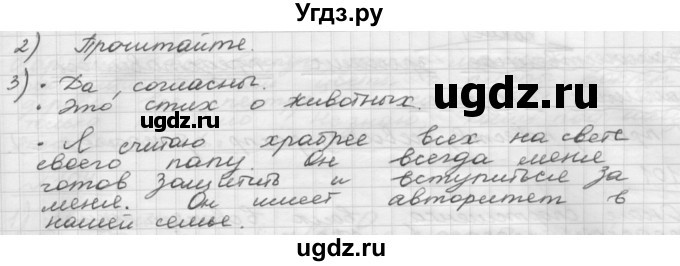 Угдз.ру
2) Прочитайте.
3) • Да, согласны.
• Это стих о животных.
• Я считаю храбрее всех на свете
своего папу. Он всегда меня
готов защитить и вступиться за
меня. Он имеет авторитет в
нашей семье.
ugdz.ru
ugdz.ru
ugdz.ru
ugdz.ru
ugdz.ru